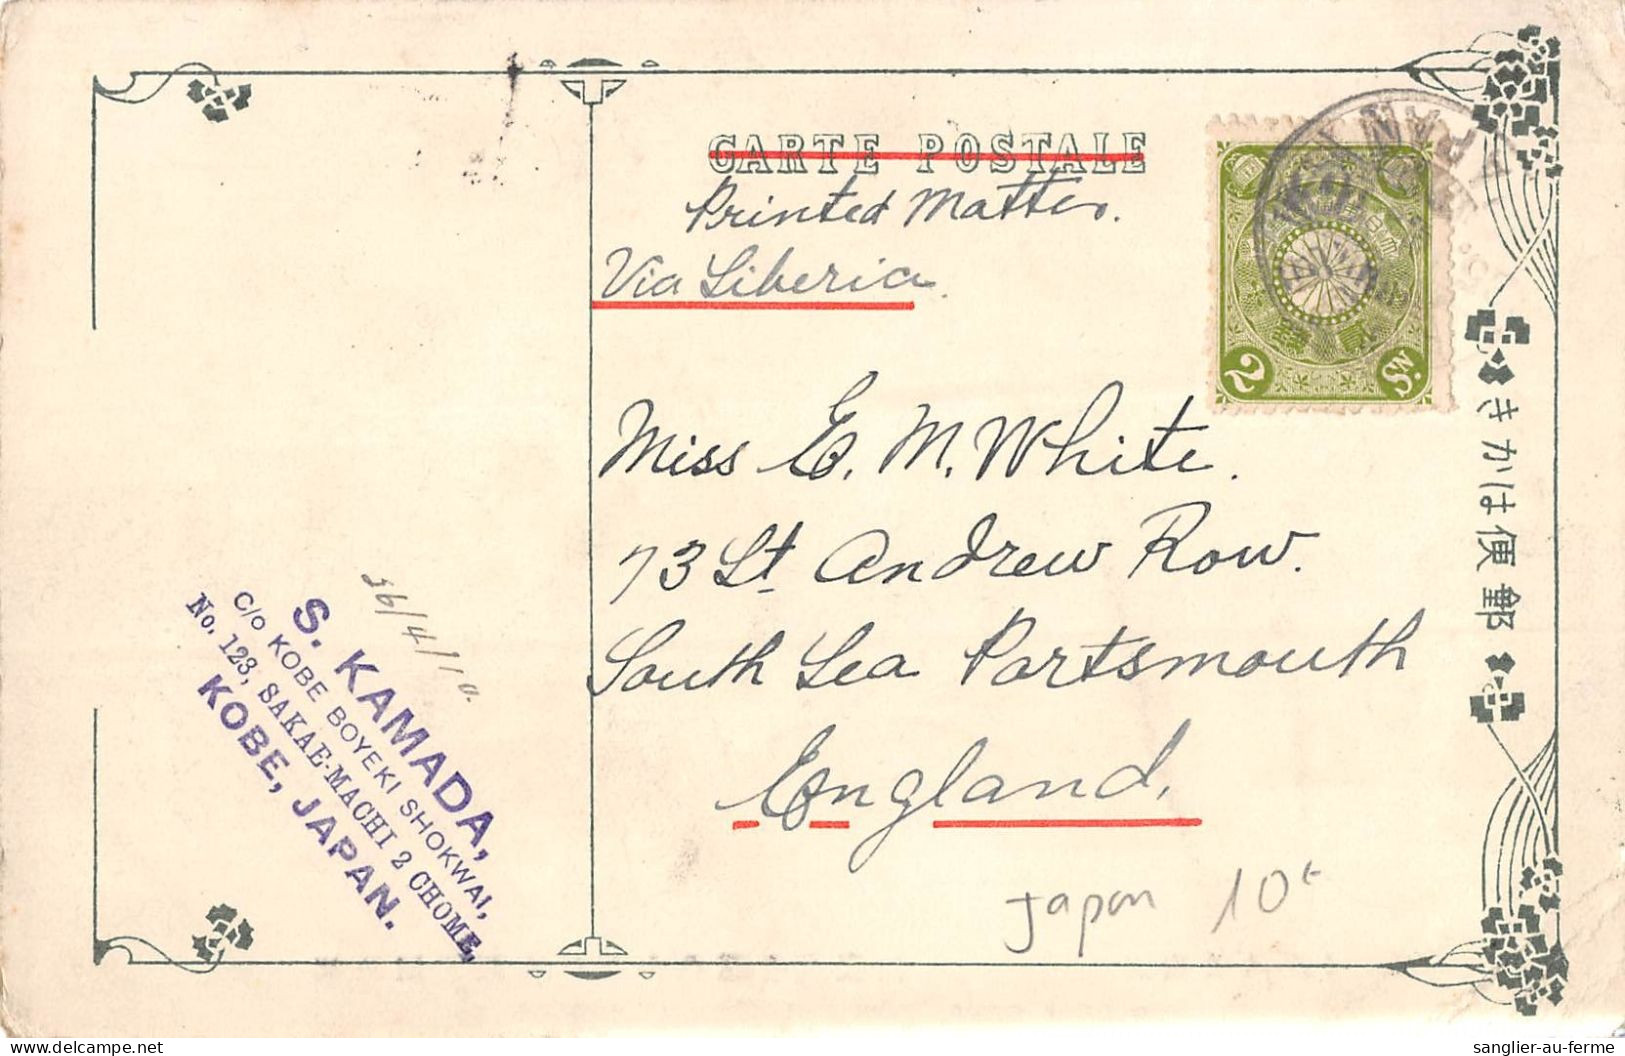 CARTE POSTALE
Printed Matter.
Via Siberia
Miss E. M. White.
73 St Andrew Row.
South Sea Portsmouth
England,
2 Sn.
きかは便郵
26/4/10.
S. KAMADA,
C/O KOBE BOYEKI SHOKWAI,
No. 123, SAKAE-MACHI 2 CHOME,
KOBE, JAPAN.
Japon 10€
sanglier-au-ferme